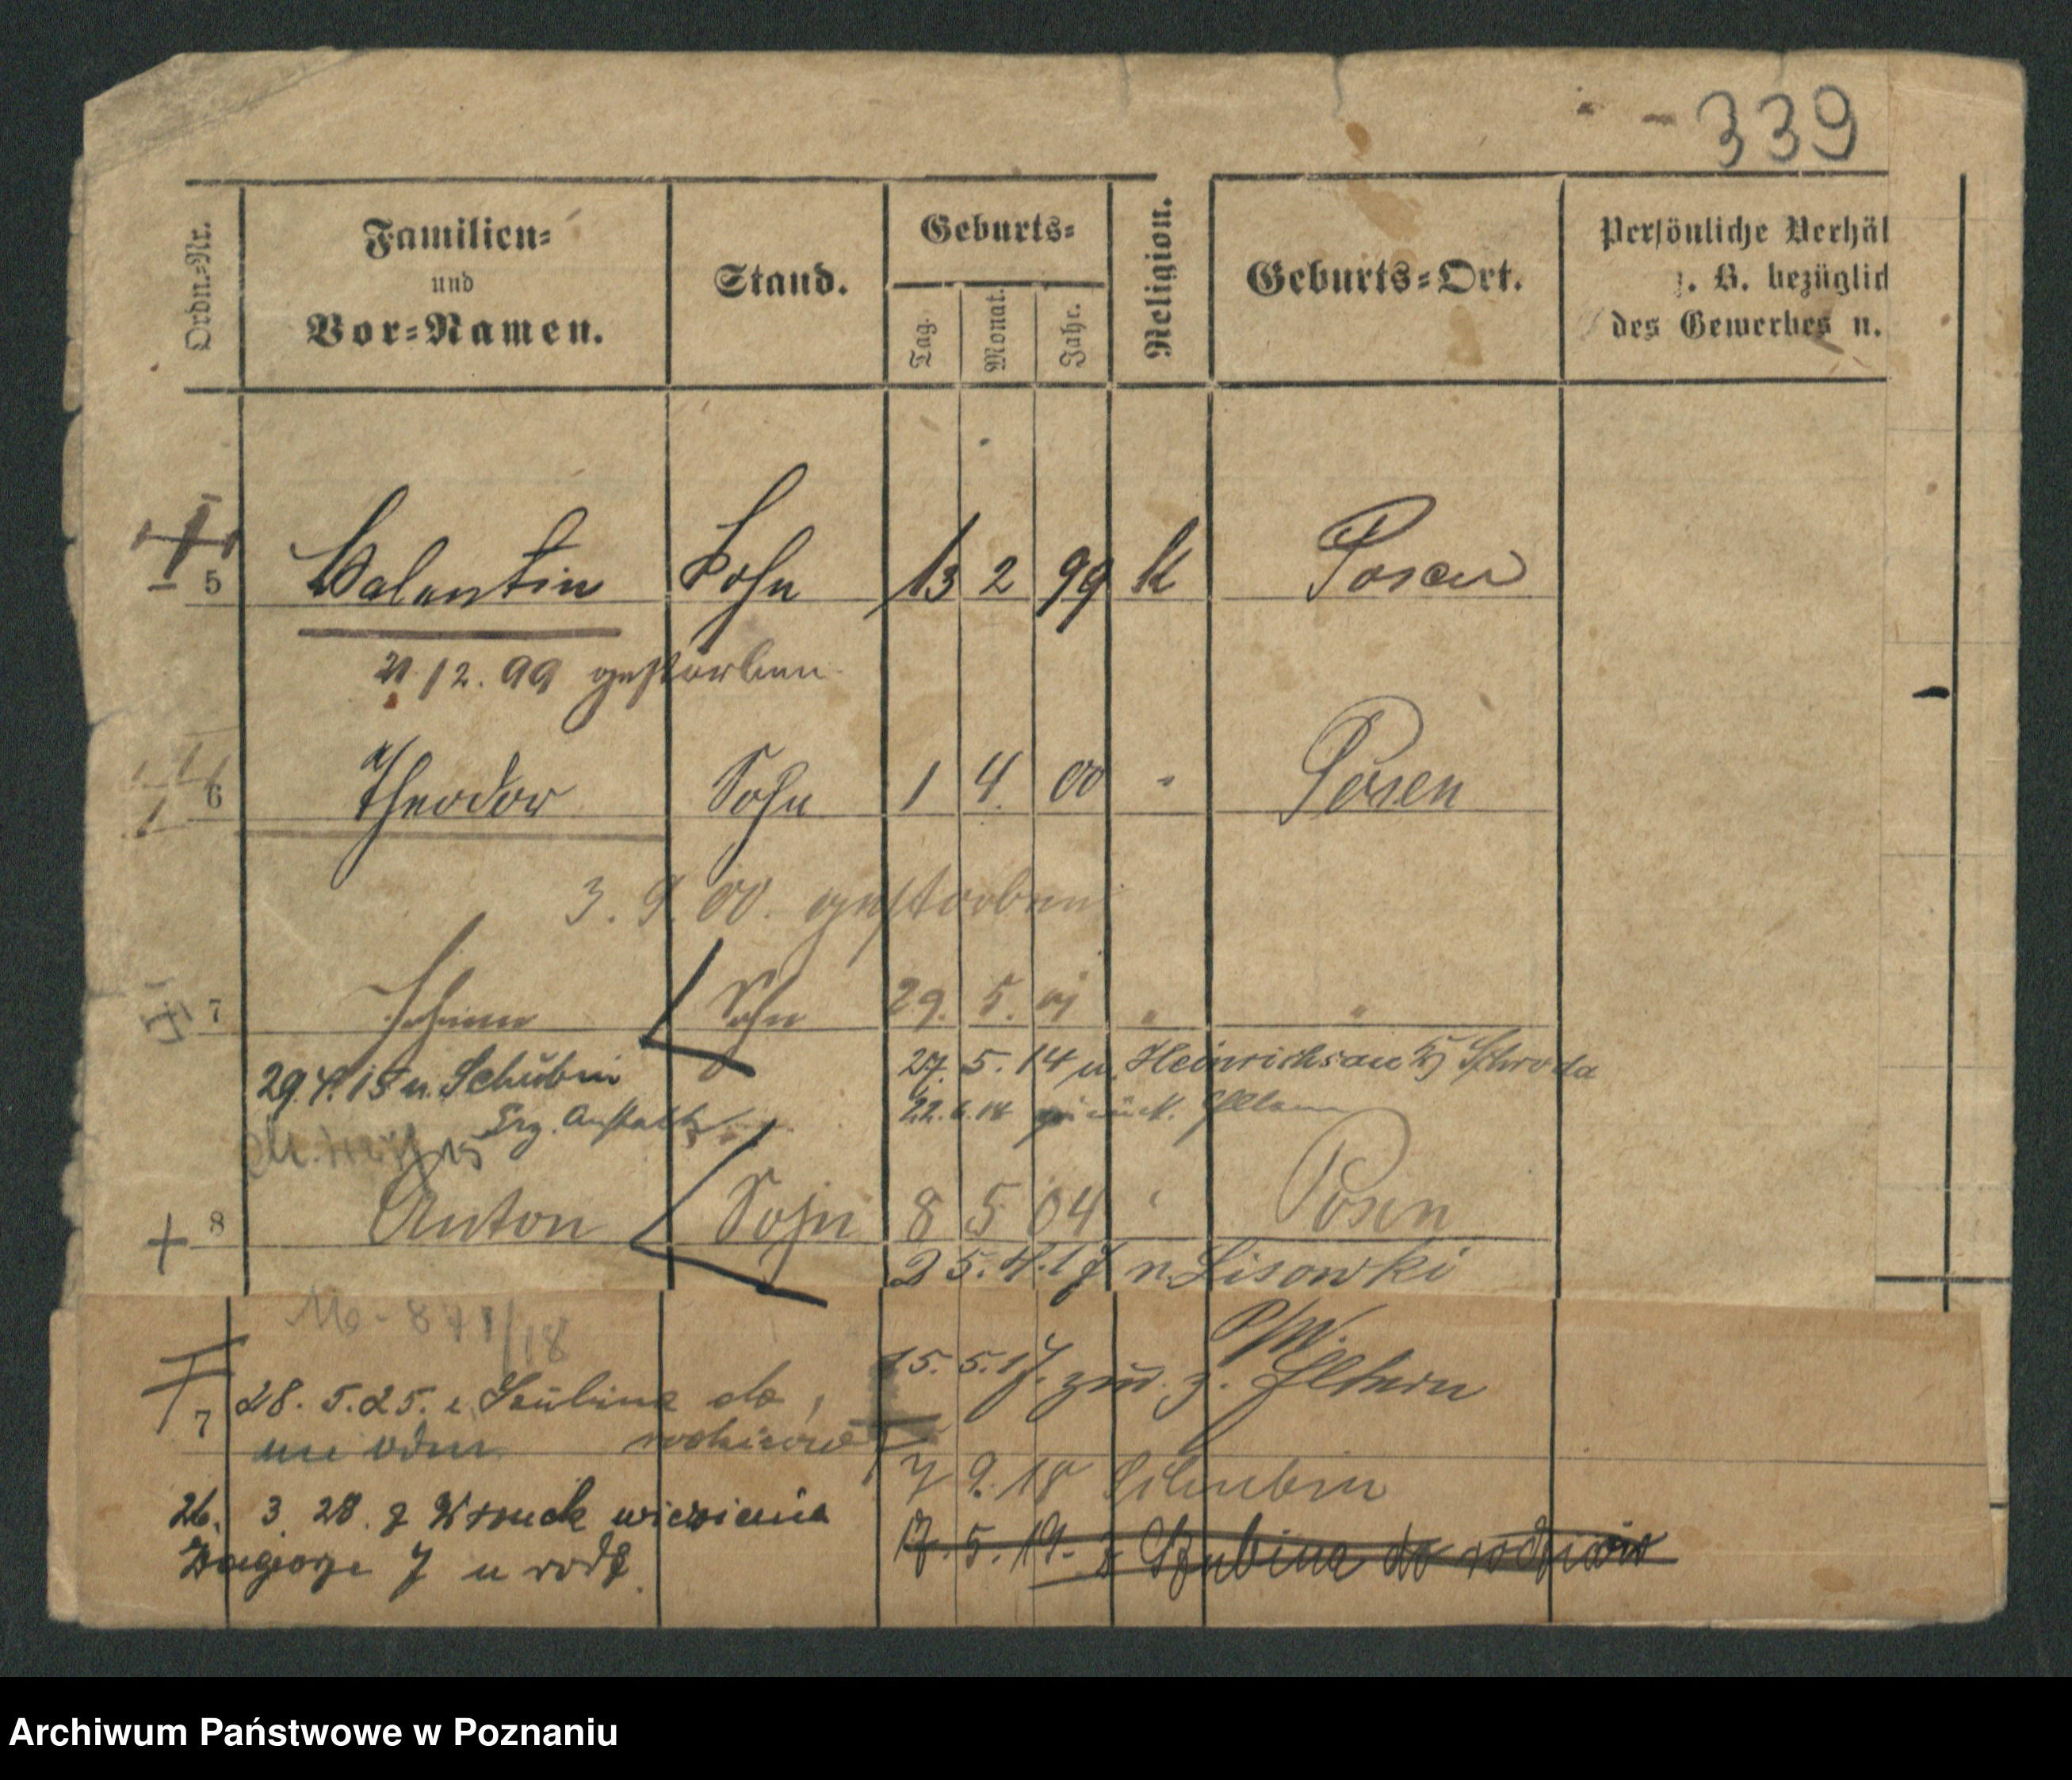 339
Ordn.-Nr.
Familien-
und
Vor-Namen.
Stand.
Geburts-
Tag.
Monat.
Jahr.
Religion.
Geburts-Ort.
Persönliche Verhäl
z. B. bezüglich
des Gewerbes u.
5 Valentin Sohn 13 2 99 k Posen
21.12.99 gestorben.
6 Theodor Sohn 1 4. 00 " Posen
3.9.00. gestorben
7 Sohn 29. 5. 01 " "
29.7.15 n. Schubin 27. 5. 14 n. Heinrichsau Kr Schroda
Erz. Anstalt 22.6.14 zurück. Eltern
8 Anton Sohn 8 5 04 " Posen
25.4.17 n. Lisowki
15.5.17. zur. z. Eltern
7 28. 5. 25. z Szubina do
rodziców
7 9. 18 Schubin
26. 3 28. z Wronek więzienia
17. 5. 19. z Szubina do rodziców
Zagorze 7 u rodz.
Archiwum Państwowe w Poznaniu